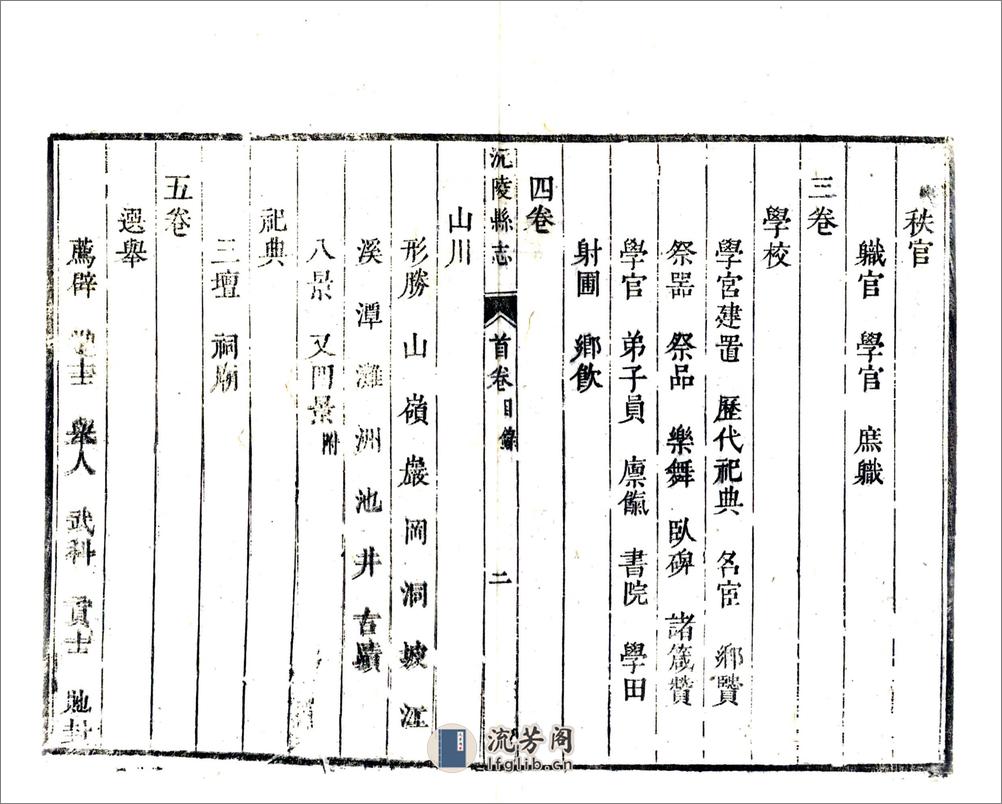 秩官
職官 學官 庶職
三卷
學校
學宮建置 歷代祀典 名宦 鄉賢
祭器 祭品 樂舞 臥碑 諸箴贊
學官 弟子員 廩餼 書院 學田
射圃 鄉飲
四卷
沅陵縣志 首卷目錄 二
山川
形勝 山嶺巖岡洞坡江
溪潭灘洲池井古蹟
八景 又門景附
祀典
三壇 祠廟
五卷
選舉
薦辟 進士 舉人 武科 貢士 封
流芳阁
lfglib.cn